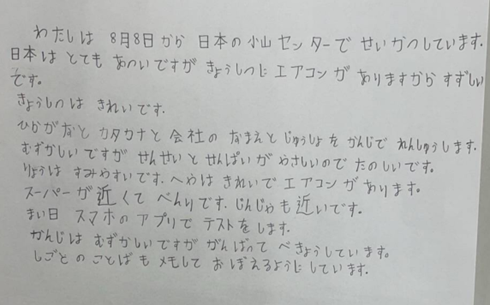 わたしは 8月8日から 日本の小山センターで せいかつしています.
日本は とても あついですが きょうしつに エアコンが ありますから すずしい
です。
きょうしつは きれいです.
ひらがなと カタカナと 会社の なまえと じゅうしょを かんじで れんしゅうします.
むずかしいですが せんせいと せんぱいが やさしいので たのしいです。
りょうは すみやすいです. へやは きれいで エアコンが あります。
スーパーが 近くて べんりです. じんじゃも 近いです。
まい日 スマホの アプリで テストを します.
かんじは むずかしいですが がんばって べきょうしています。
しごとの ことばも メモして おぼえるように しています.